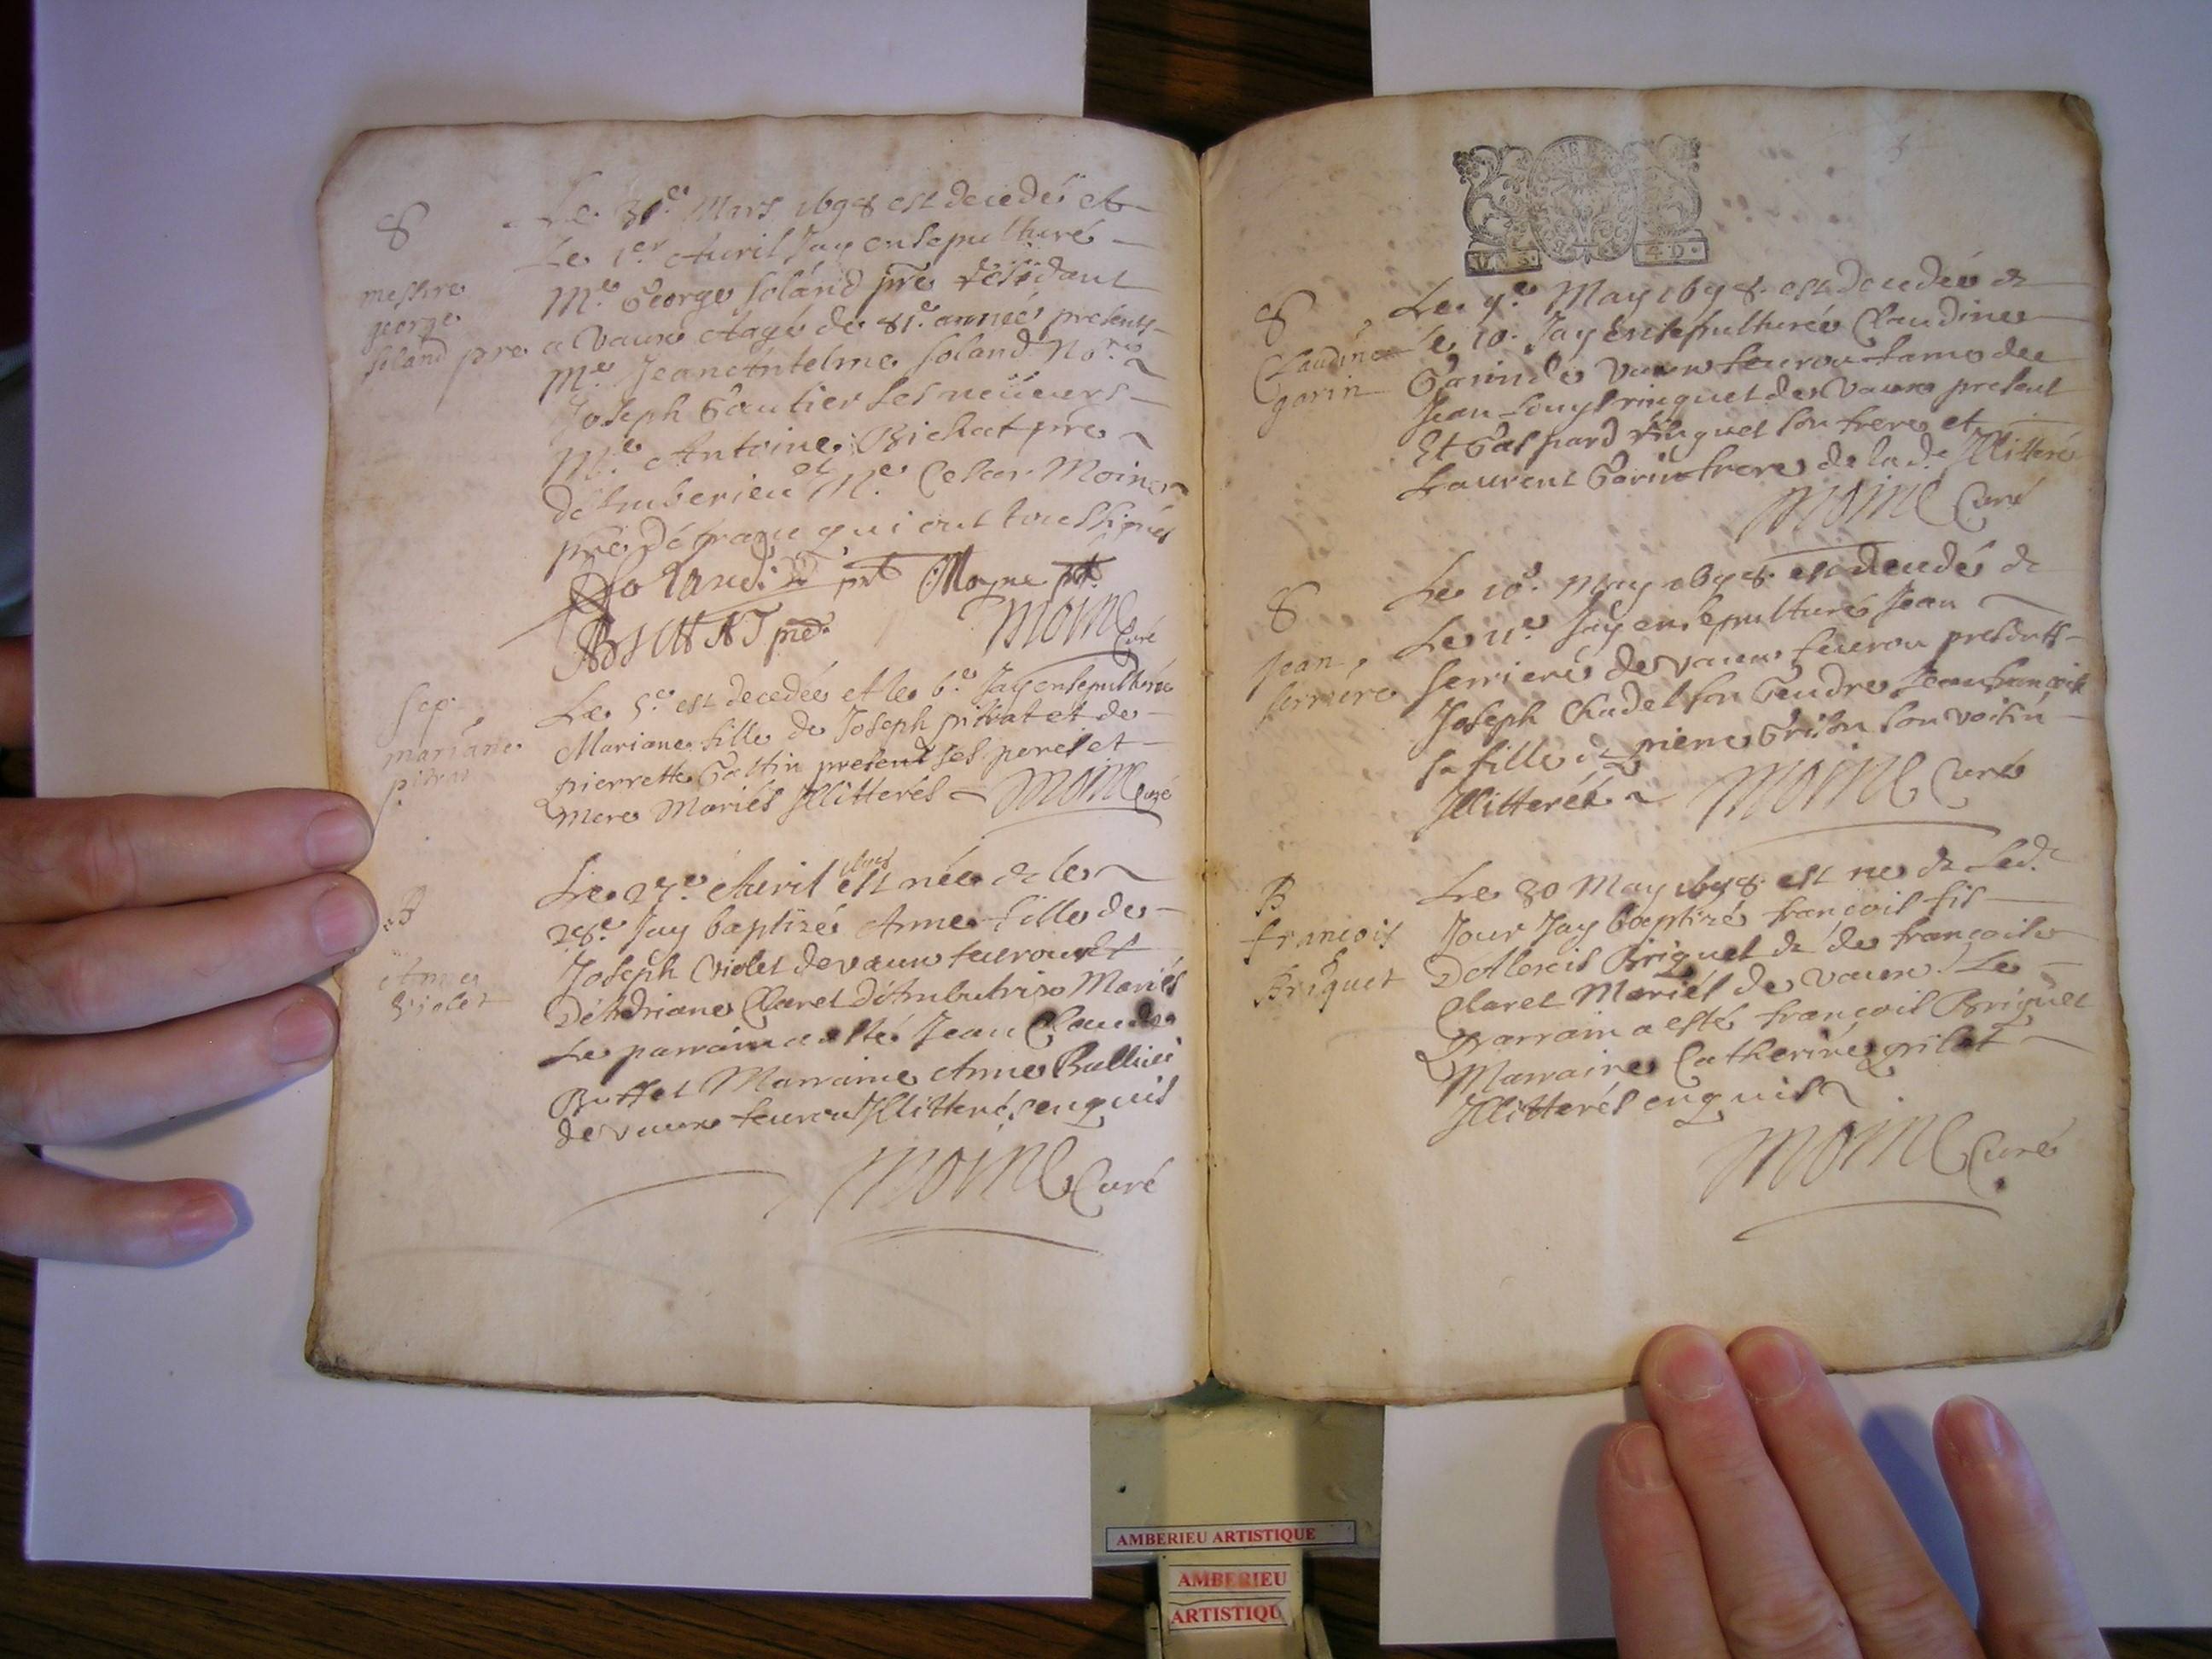 S
messire
george
soland pre
Le 31e. Mars 1698 est decedé et
Le 1er Avril Jay ensepulturé
Me George soland pre residant
a Vaux Aagé de 81e. année presents
Me Jean Antelme soland Nore
Joseph Gautier ses neueurs
Me Antoine Bichat pre
d'Amberieu et Me Cesar Moine
pre qui ont tous signés
Solandi pre Moyne pre
BICHAT pre. MOINE Curé
sep.
mariane
pitrat
Le 5e est decedée et le 6e Jay ensepulturée
Mariane fille de Joseph pitrat et de
pierrette presents ses peres et
Mere Mariés Illitterés MOINE Curé
B
Anne
Violet
Le 27e Avril est née & le
28e Jay baptizé Anne fille de
Joseph Violet de vaux feurou et
D'Adriane Claret d'Ambutrix Mariés
Le parrain a esté Jean Claude
Buffet Marraine Anne
de vaux feurou Illitterés enquis
MOINE Curé
S
Claudine
garin
Le 9e May 1698. est decedée &
Le 10. Jay Ensepulturée Claudine
Garin de vaux feurou fame de
Jean Louys ringuet de Vaux present
Et Gaspard ringuet son frere et
Laurent Garin frere de la de Illitterés
MOINE Curé
S
Jean
serriere
Le 10e. May 1698. est decedé &
Le 11e Jay ensepulturé Jean
serriere de vaux feurou presents
Joseph Chadel son Gendre Jean francois
sa fille & pierre Grison son voisin
Illitterés MOINE Curé
B
francois
Briquet
Le 30 May 1698. est ne & Led.
Jour Jay baptizé francois fils
D'Alexis Briquet & de francoise
Claret Mariés de vaux. Le
parrain a esté francois Briquet
Marraine Catherine pilat
Illitterés enquis
MOINE Curé
AMBERIEU ARTISTIQUE
AMBERIEU
ARTISTIQU